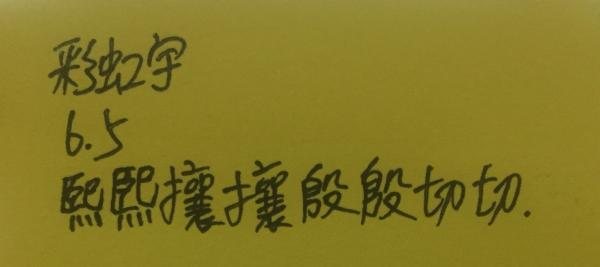 彩虹字
6.5
熙熙攘攘殷殷切切.